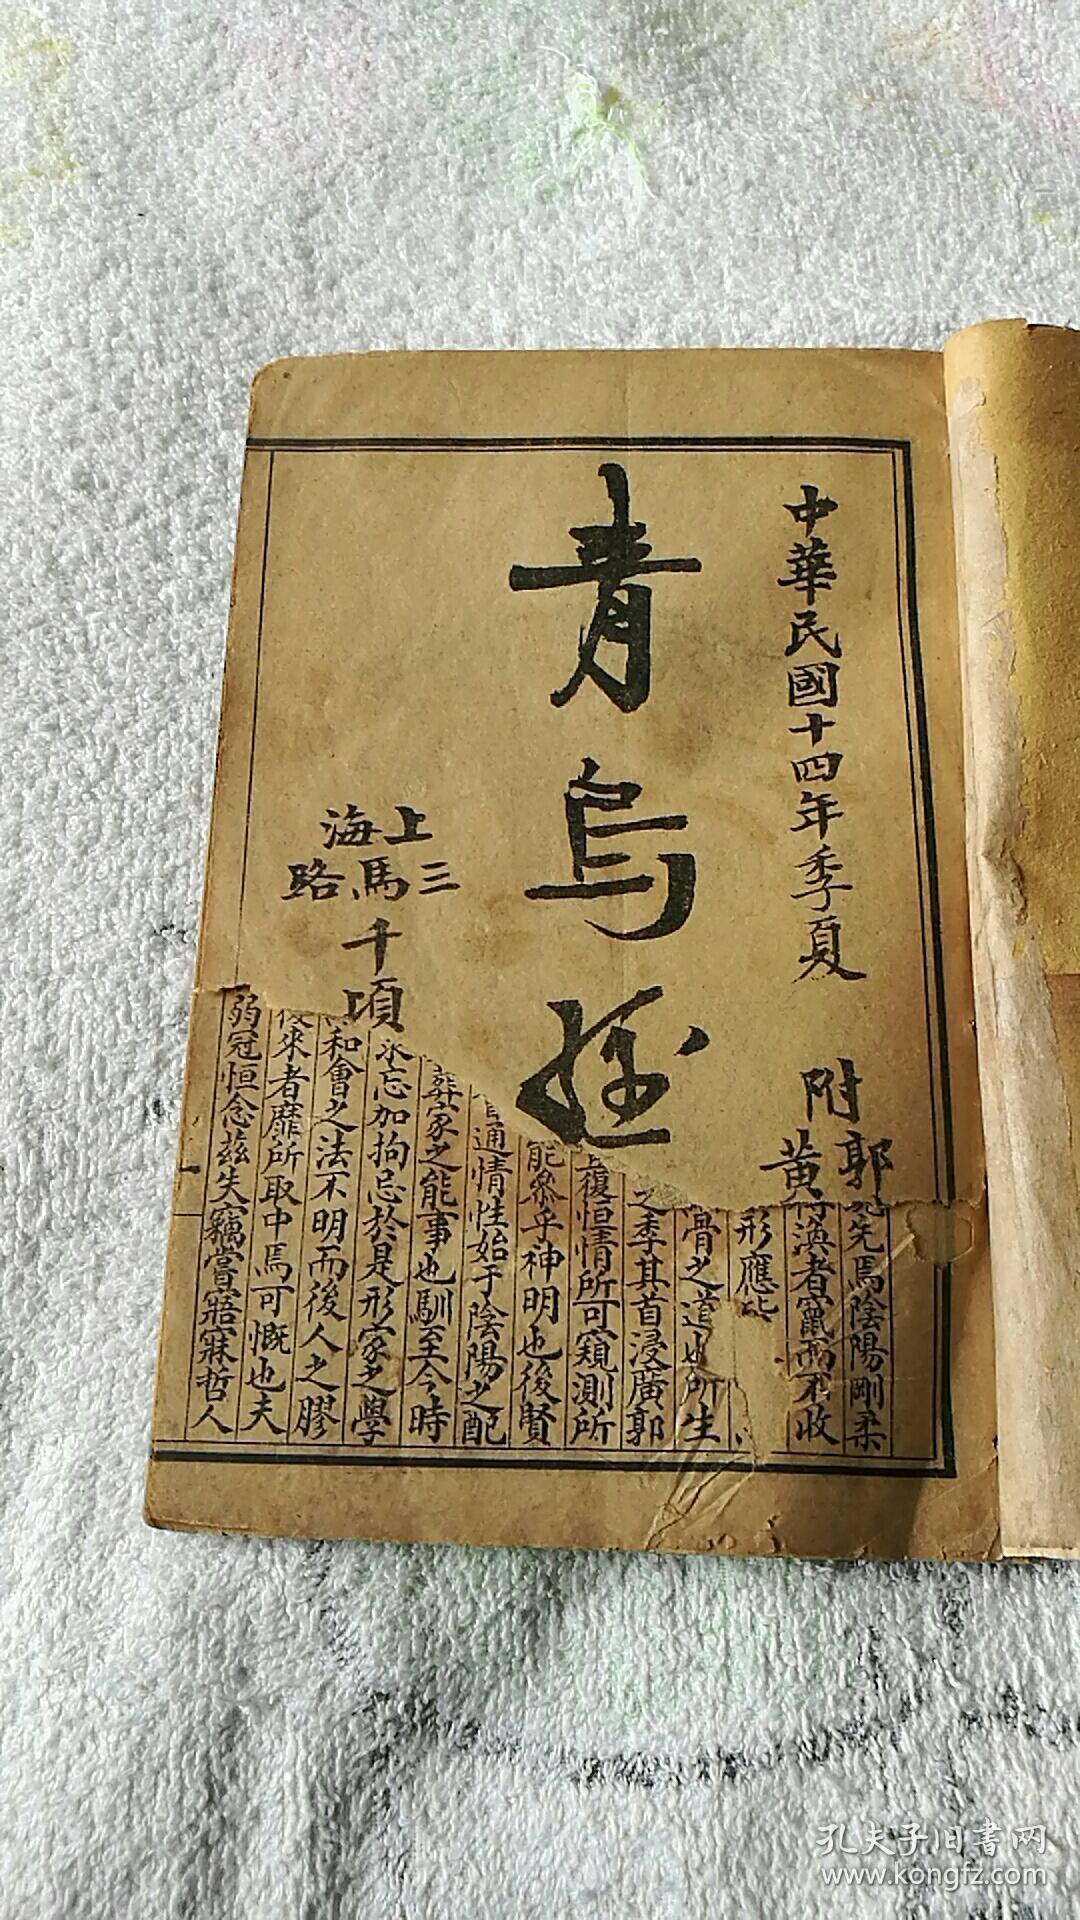 中華民國十四年季夏
附郭
黃
青烏
上海
三馬路
千頃
先焉陰陽剛柔
渙者竄而不收
形應
骨之道也所生
之季其首浸廣郭
復恒情所可窺測所
能參乎神明也後賢
通情性始于陰陽之配
葬家之能事也馴至今時
忘加拘忌於是形家之學
和會之法不明而後人之膠
來者靡所取中焉可慨也夫
弱冠恒念茲失竊嘗寤寐哲人
孔夫子旧書网
www.kongfz.com